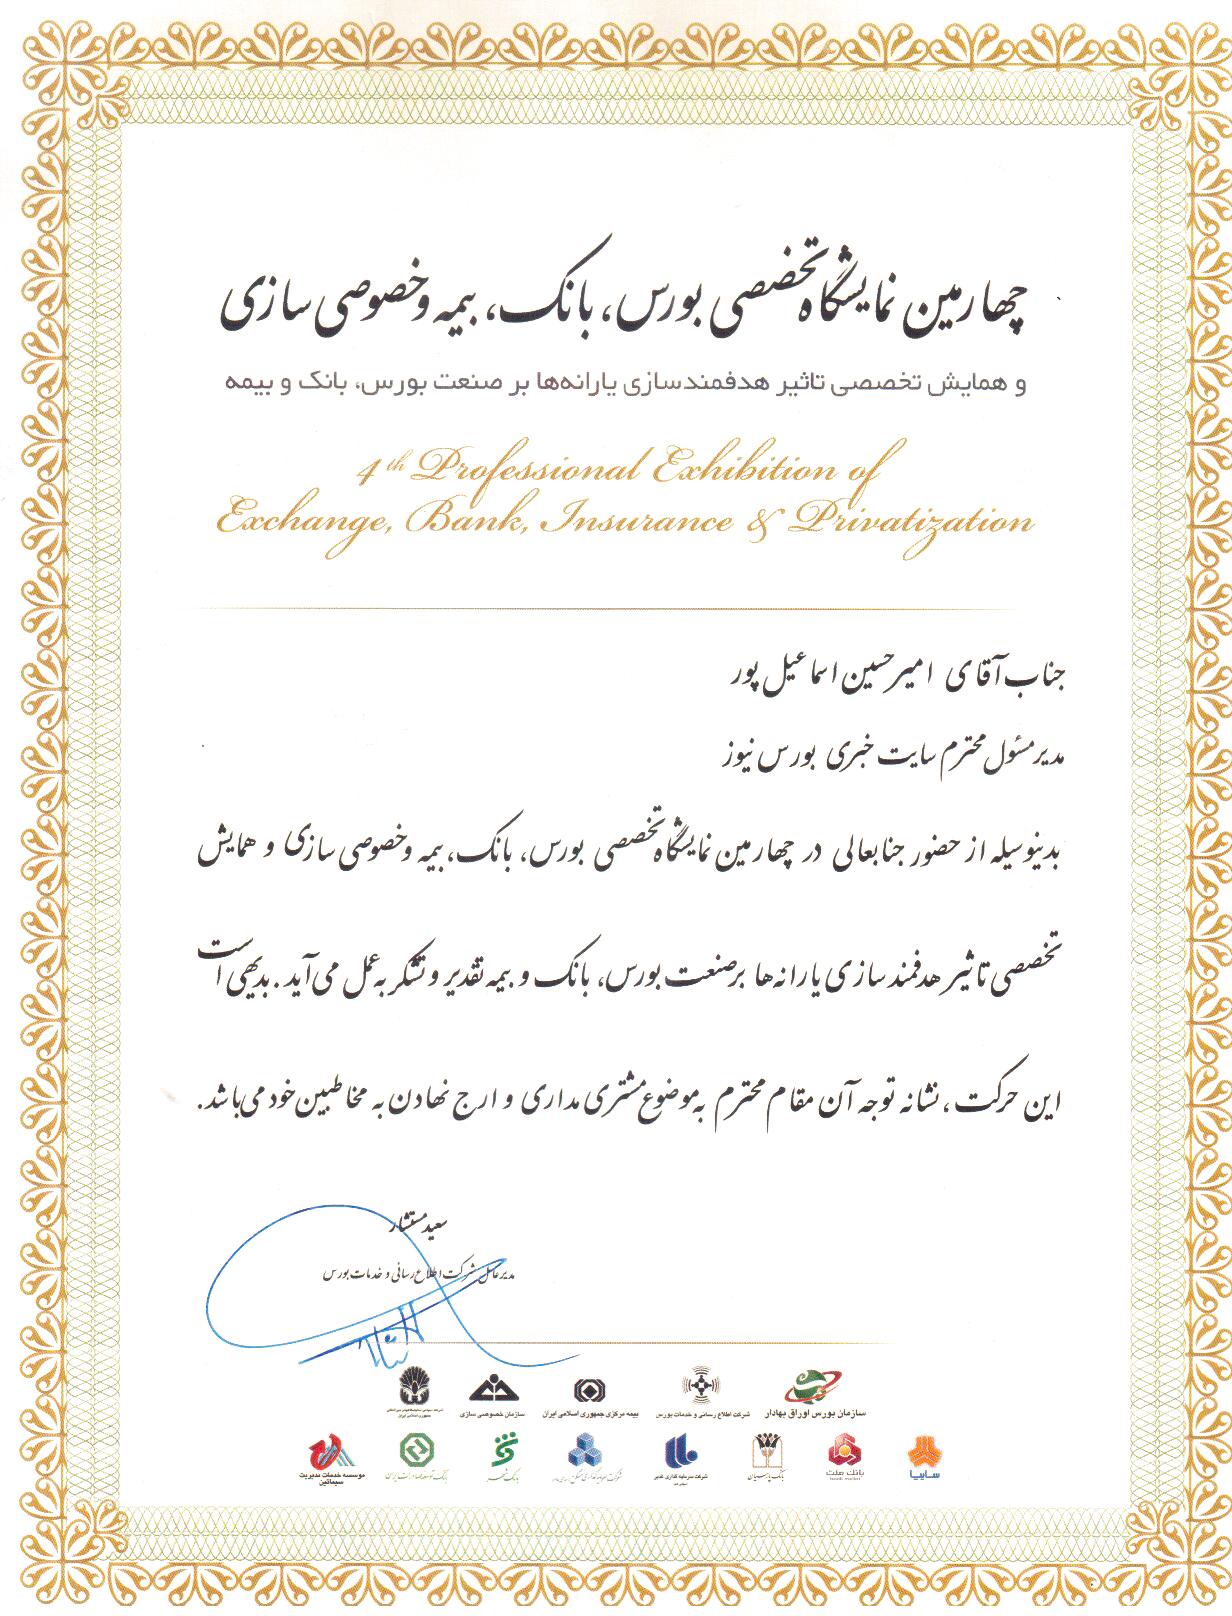 چهارمین نمایشگاه تخصصی بورس، بانک، بیمه و خصوصی سازی
و همایش تخصصی تاثیر هدفمندسازی یارانه‌ها بر صنعت بورس، بانک و بیمه
4th Professional Exhibition of
Exchange, Bank, Insurance & Privatization
جناب آقای امیرحسین اسماعیل پور
مدیر مسئول محترم سایت خبری بورس نیوز
بدینوسیله از حضور جنابعالی در چهارمین نمایشگاه تخصصی بورس، بانک، بیمه و خصوصی سازی و همایش
تخصصی تاثیر هدفمند سازی یارانه ها بر صنعت بورس، بانک و بیمه تقدیر و تشکر به عمل می آید. بدیهی است
این حرکت، نشانه توجه آن مقام محترم به موضوع مشتری مداری و ارج نهادن به مخاطبین خود می باشد.
سعید مستشار
مدیرعامل شرکت اطلاع رسانی و خدمات بورس
سازمان بورس اوراق بهادار
شرکت اطلاع رسانی و خدمات بورس
بیمه مرکزی جمهوری اسلامی ایران
سازمان خصوصی سازی
سایپا
بانک ملت
بانک پارسیان
شرکت سرمایه گذاری غدیر
بانک شهر
بانک توسعه صادرات ایران
موسسه خدمات مدیریت